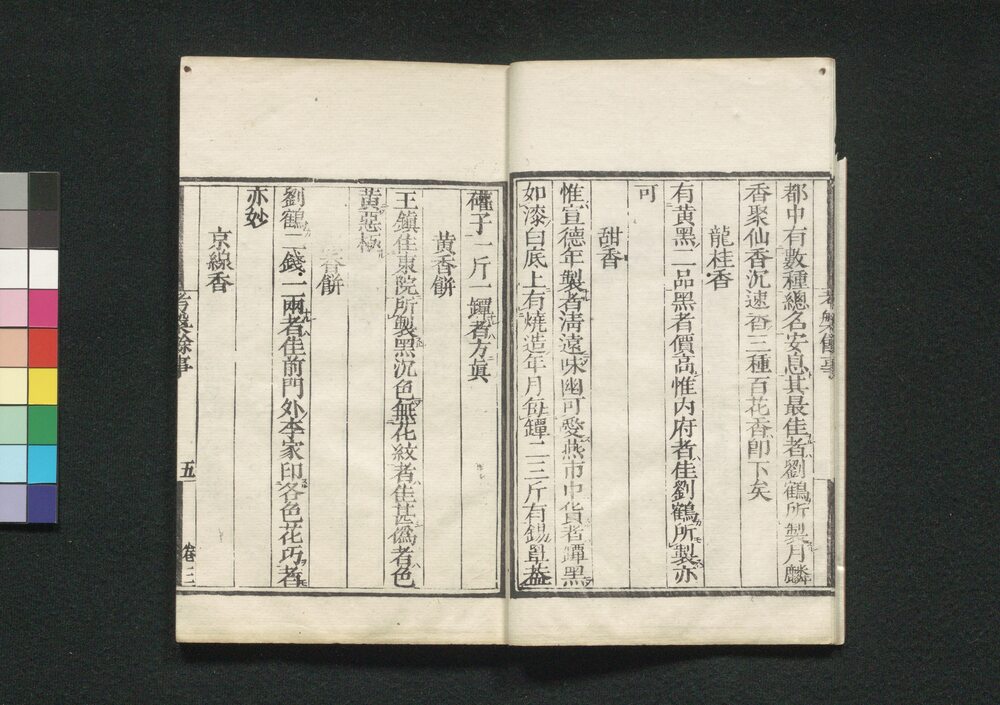 都中有數種總名安息其最佳者劉鶴所製月麟
香聚仙香沉速香三種百花香即下矣
龍桂香
有黃黑二品黑者價高惟内府者佳劉鶴所製亦
可
甜香
惟宣德年製者淸遠味幽可愛燕市中貨者罈黑
如漆白底上有燒造年月每罈二三斤有錫罩蓋
罐子一斤一罈者方眞
黃香餅
王鎮住東院所製黑沉色無花紋者佳甚偽者色
黃惡極
香餅
劉鶴二錢一兩者佳前門外李家印各色花巧者
亦妙
京線香
考槃餘事
五
卷三